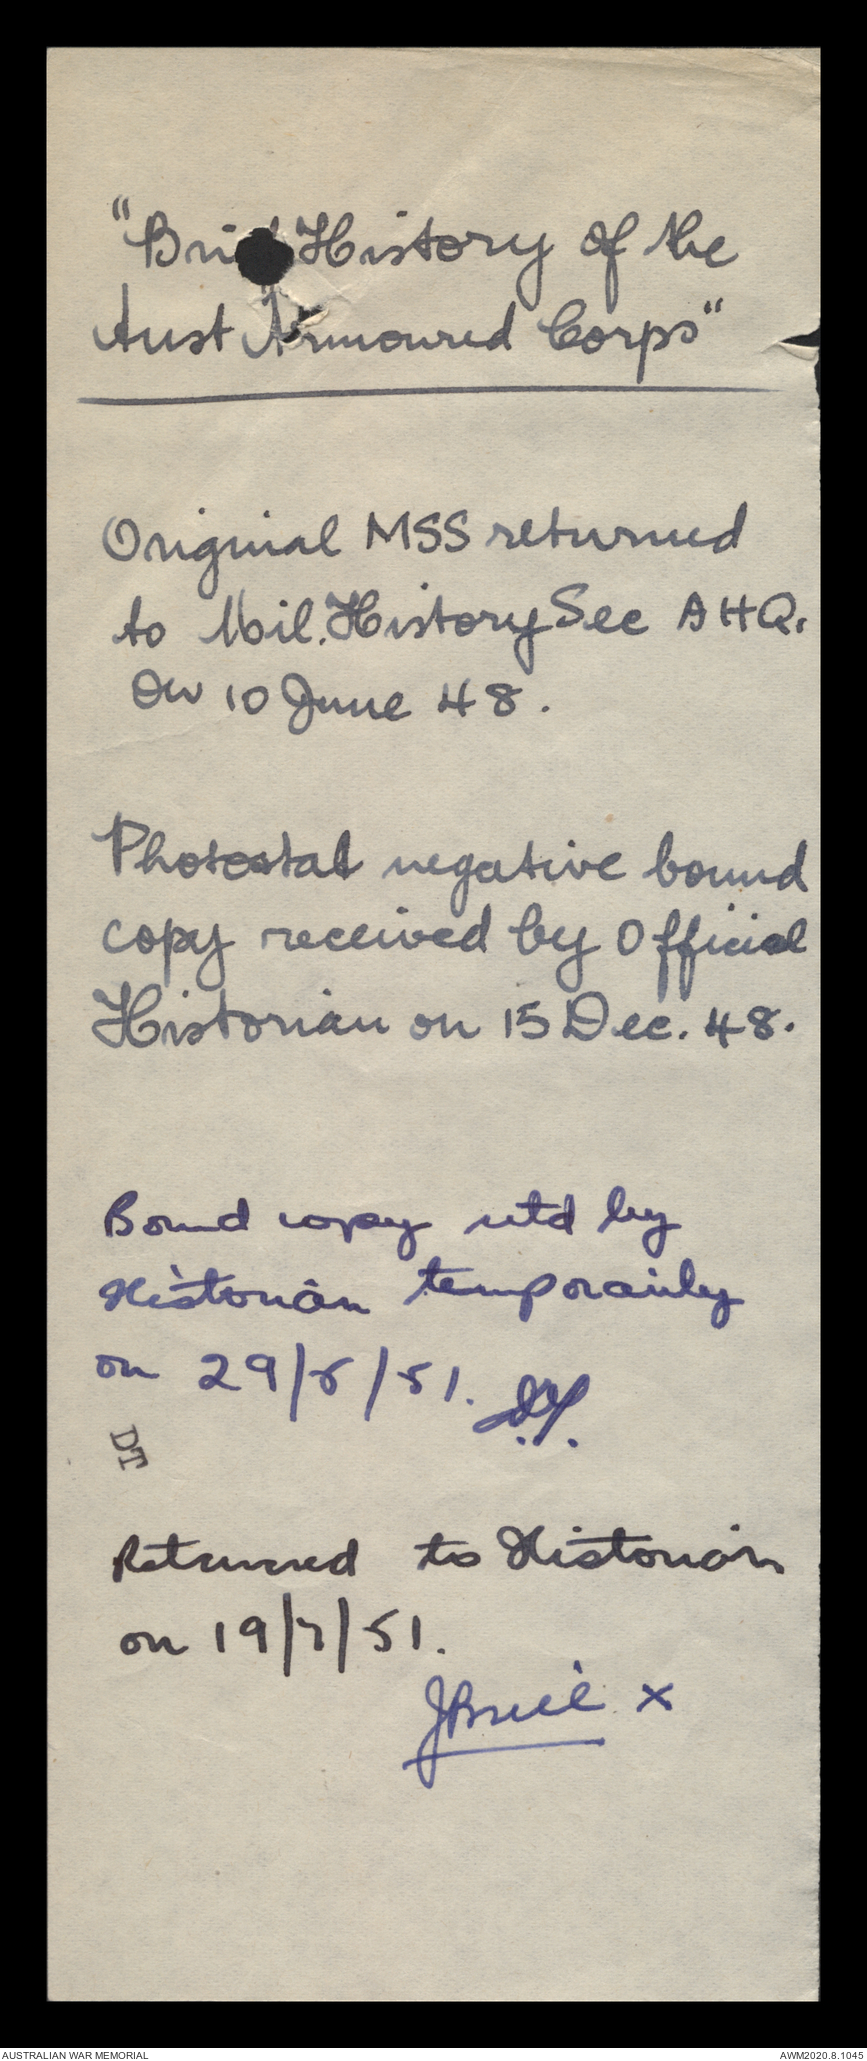 "Brief History of the
Aust Armoured Corps"
Original MSS returned
to Mil. History Sec AHQ.
on 10 June 48.
Photostat negative bound
copy received by Official
Historian on 15 Dec. 48.
Bound copy rtd by
Historian temporarily
on 29/5/51.
DT
Returned to Historian
on 19/7/51.
x
AUSTRALIAN WAR MEMORIAL
AWM2020.8.1045